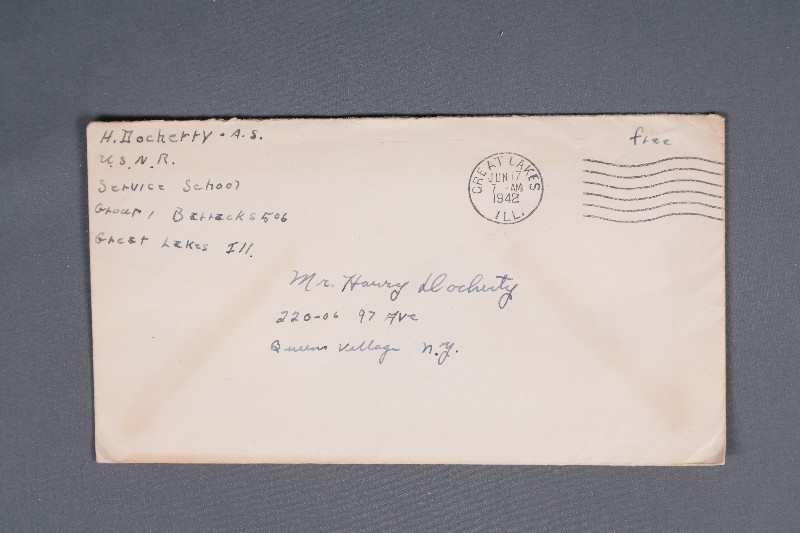 H. Docherty - A.S.
U.S.N.R.
Service School
Group 1 Barracks 506
Great Lakes Ill.
free
GREAT LAKES
JUN 17
7 AM
1942
ILL.
Mr. Harry Docherty
220-06 97 Ave
Queens Village N.Y.